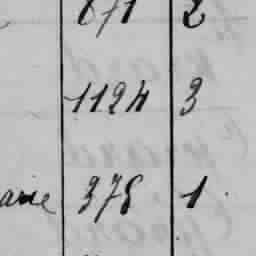 671 2
1124 3
arie 378 1